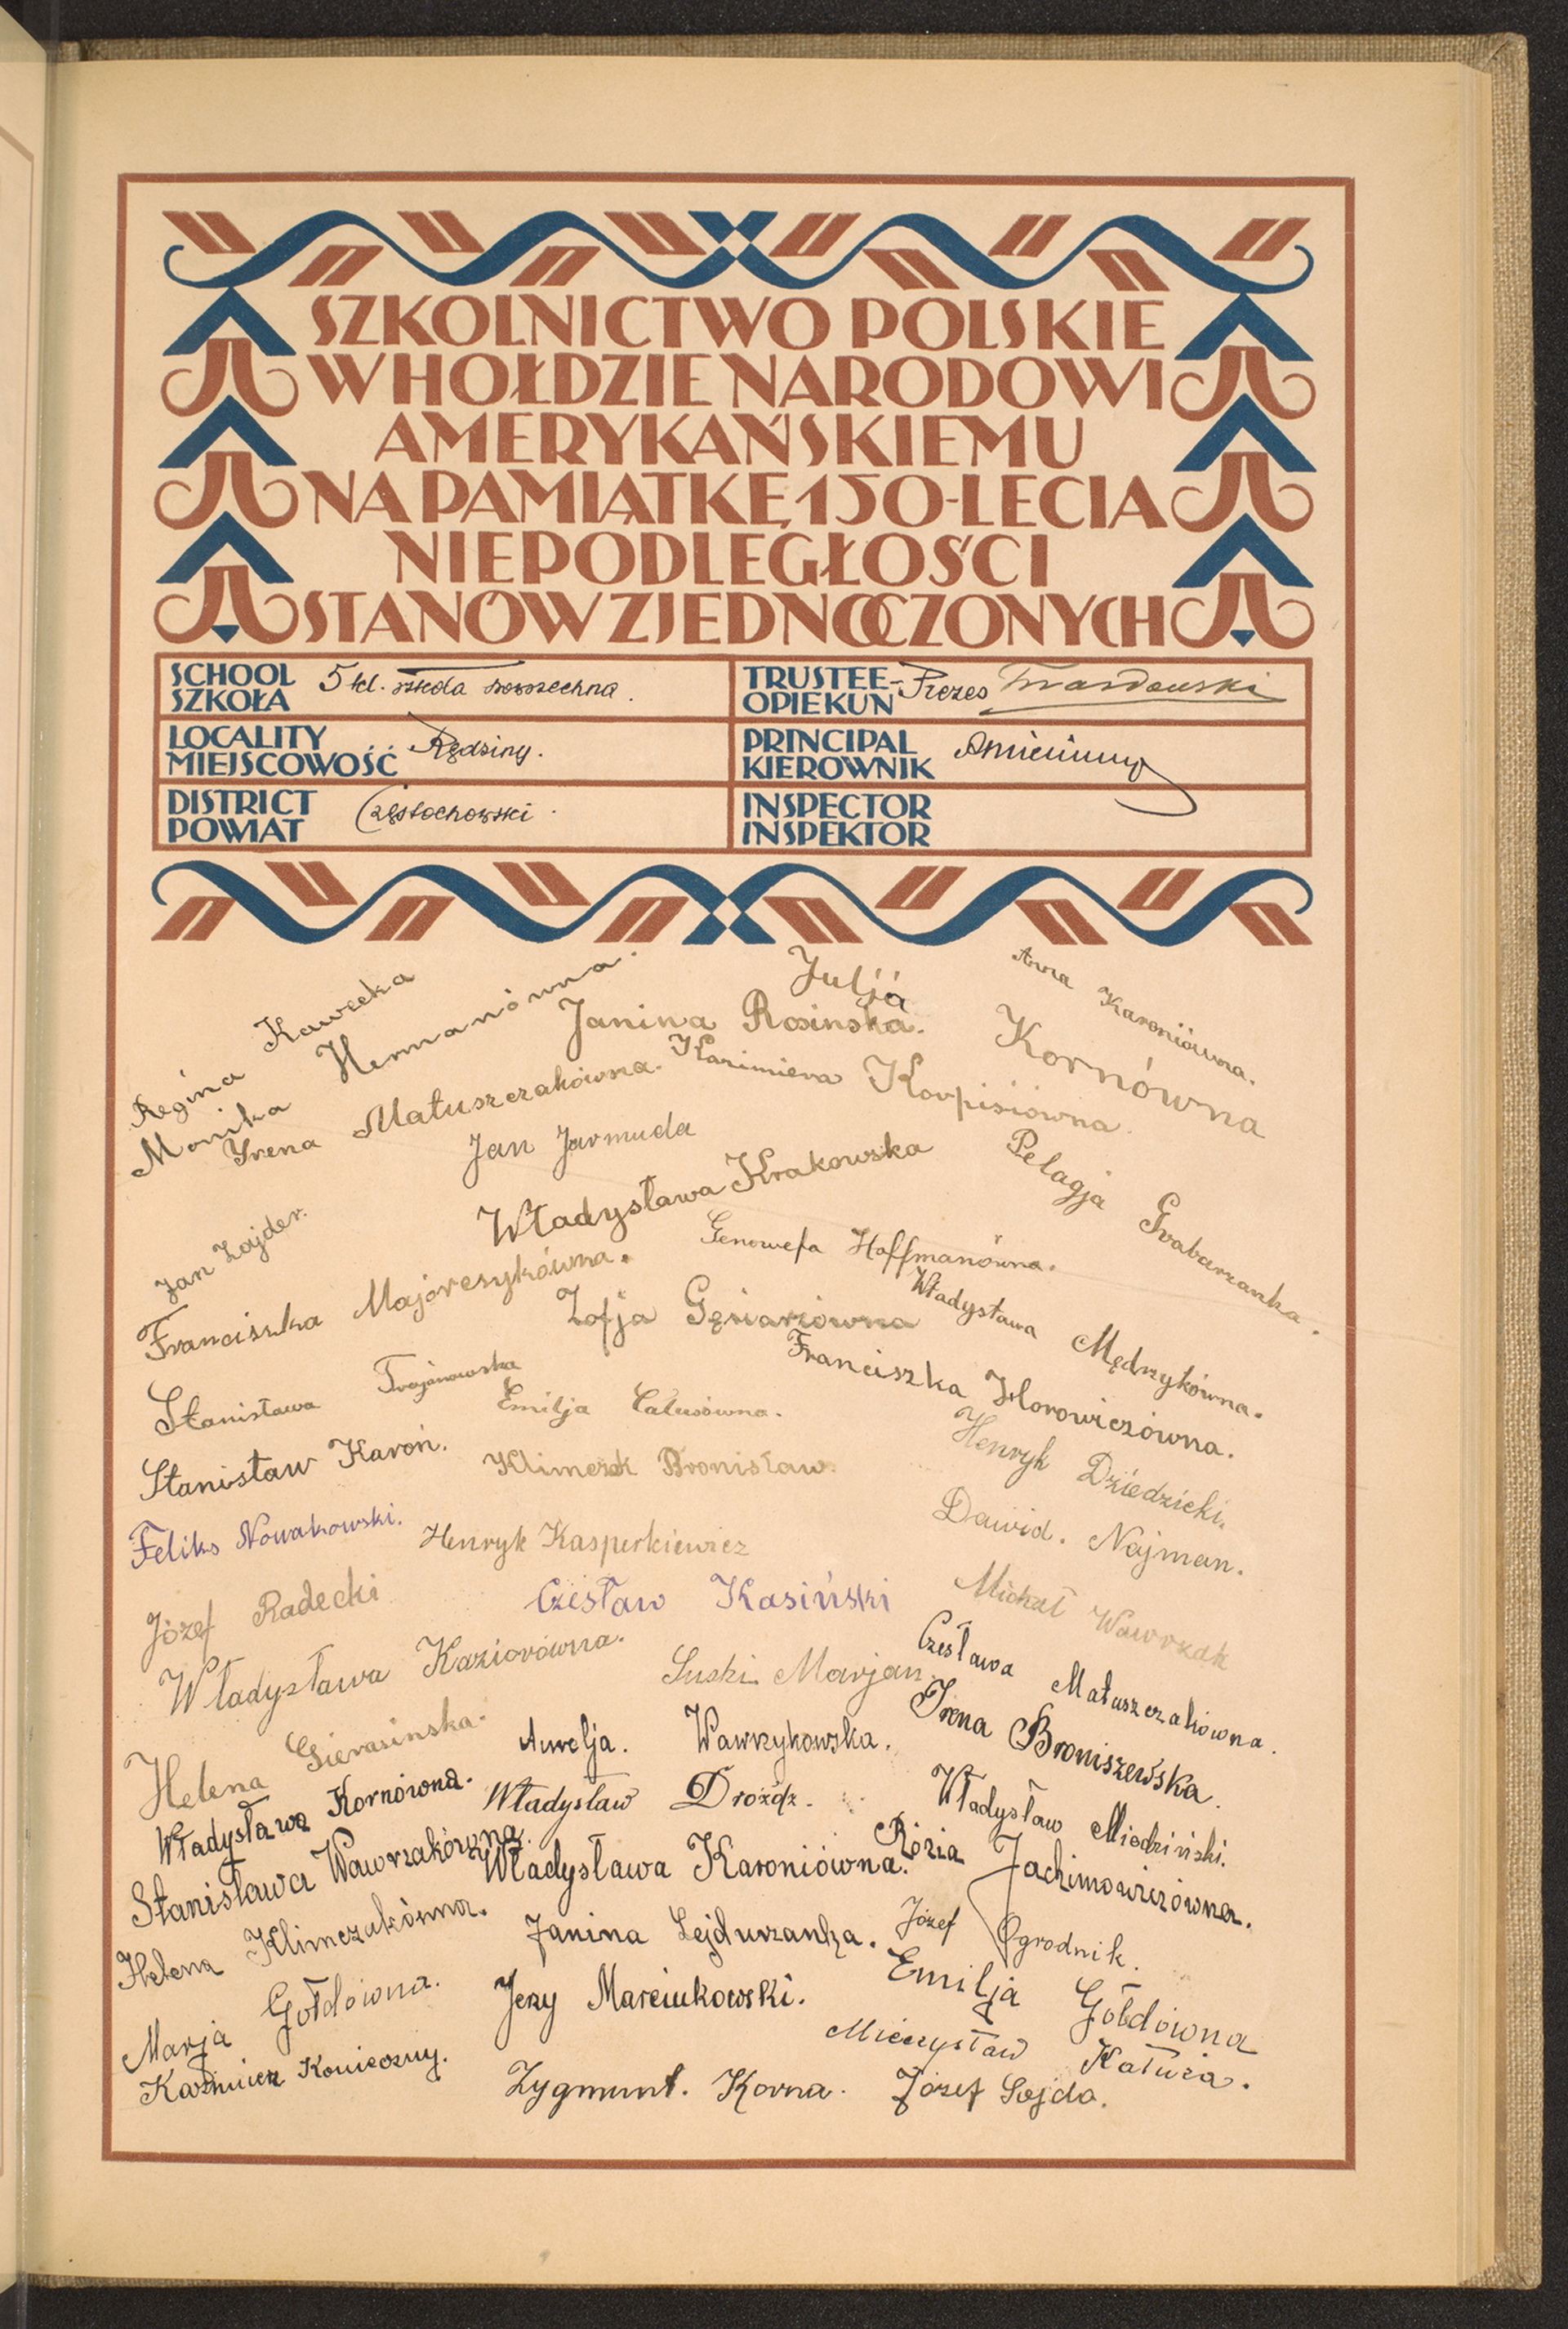 SZKOLNICTWO POLSKIE
W HOŁDZIE NARODOWI
AMERYKAŃSKIEMU
NA PAMIĄTKĘ 150-LECIA
NIEPODLEGŁOŚCI
STANÓW ZJEDNOCZONYCH
SCHOOL
SZKOŁA
5 kl. szkoła powszechna.
TRUSTEE-
OPIEKUN
Prezes
LOCALITY
MIEJSCOWOŚĆ
Rędziny.
PRINCIPAL
KIEROWNIK
DISTRICT
POWIAT
Częstochowski
INSPECTOR
INSPEKTOR
Regina Kawecka
Monika Hermanówna.
Julja Kornówna
Anna Karoniówna.
Janina Rosinska.
Yrena Matuszczakówna.
Kazimiera Karpisiówna.
Jan Jarmuda
Władysława Krakowska
Pelagja Grabarzanka.
Jan Zajder.
Genowefa Hoffmanówna.
Franciszka Majorczykówna.
Zofja Gęsiarzówna
Władysława Mędrzykówna.
Stanisława Trojanowska
Franciszka Horowiczówna.
Emilja Całusówna.
Stanisław Karoń.
Klimczak Bronisław.
Henryk Dziedzicki.
Feliks Nowakowski.
Henryk Kasperkiewicz
Dawid. Najman.
Józef Radecki
Czesław Kasiński
Michał Wawrzak
Władysława Kaziorówna.
Suski Marjan.
Czesława Matuszczakówna.
Helena Gierasinska.
Aurelja. Wawrzykowska.
Irena Broniszewska.
Władysława Kornówna.
Władysław Drózdz.
Władysław Miedziński.
Stanisława Wawrzakówna.
Władysława Karoniówna.
Rózia Jachimowiczówna.
Helena Klimczakówna.
Janina Lejdurzanka.
Józef Ogrodnik.
Marja Gołdówna.
Jerzy Marciukowski.
Emilja Gołdówna
Kazimierz Konieczny.
Mieczysław Katuza.
Zygmunt. Korna.
Józef Sojda.